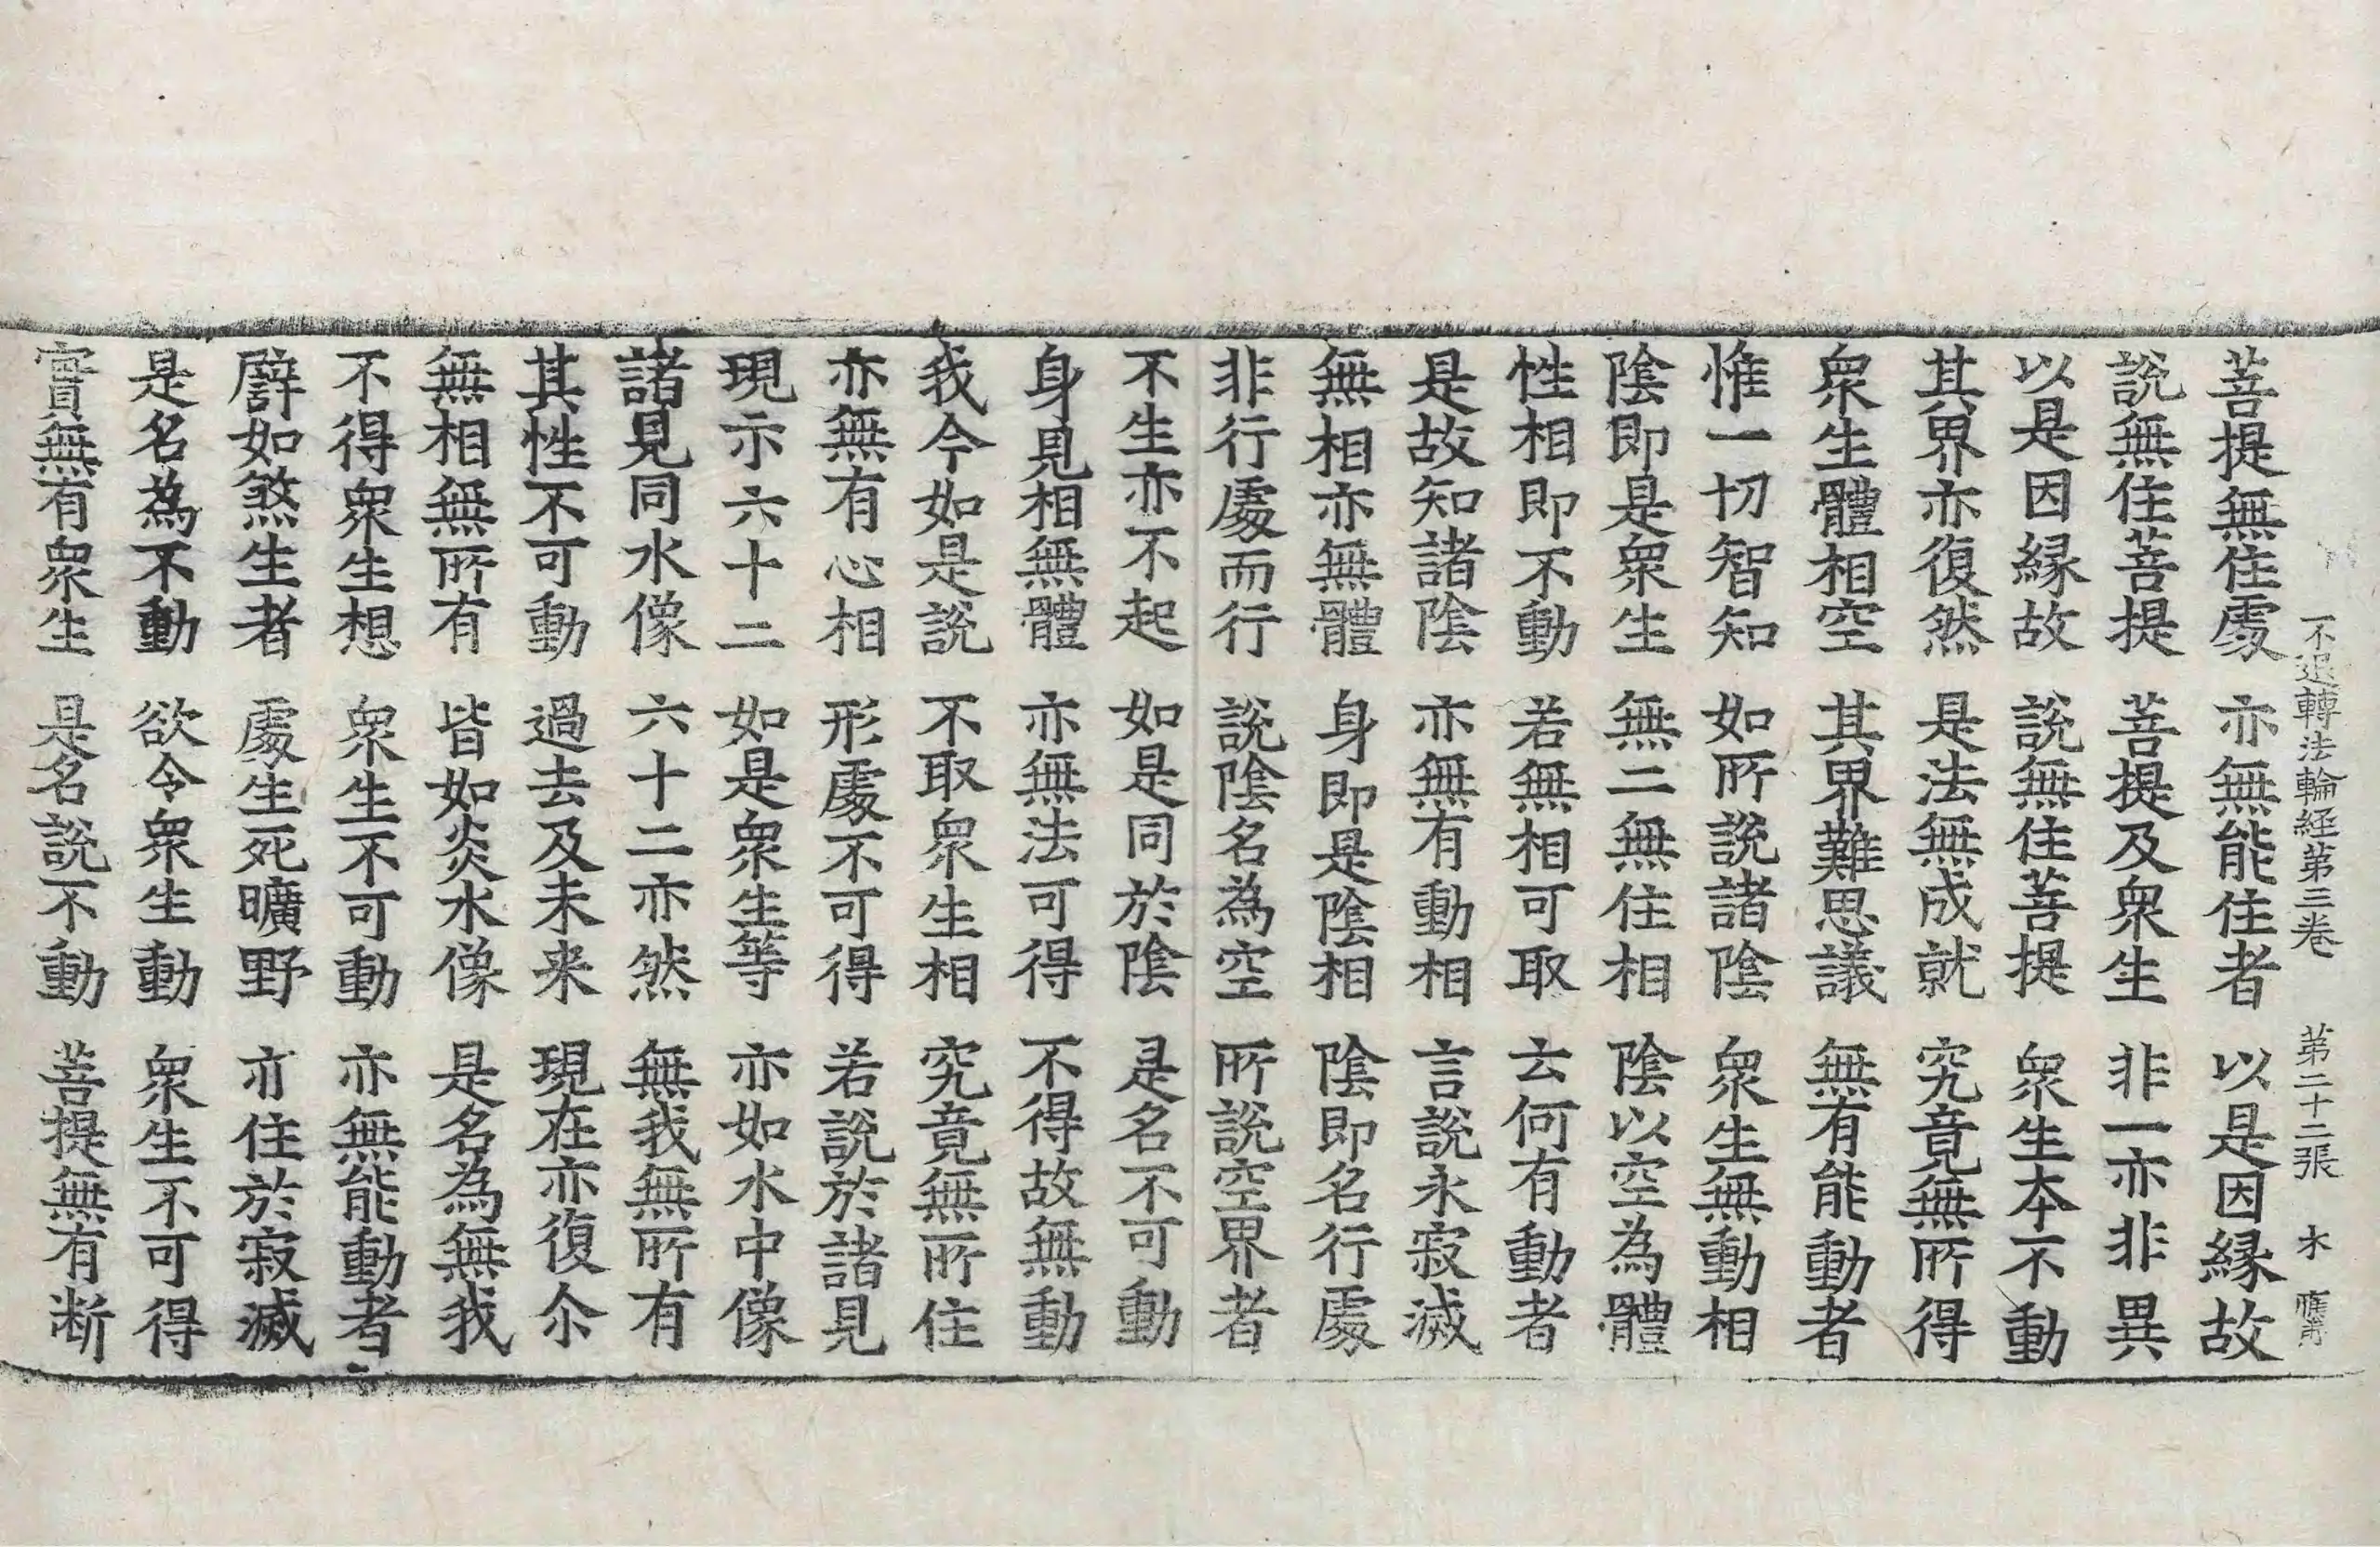 不退轉法輪経第三巻 第二十二張 木
菩提無住處 亦無能住者 以是因縁故
說無住菩提 菩提及衆生 非一亦非異
以是因縁故 說無住菩提 衆生本不動
其界亦復然 是法無成就 究竟無所得
衆生體相空 其界難思議 無有能動者
惟一切智知 如所說諸陰 衆生無動相
陰即是衆生 無二無住相 陰以空為體
性相即不動 若無相可取 云何有動者
是故知諸陰 亦無有動相 言說永寂滅
無相亦無體 身即是陰相 陰即名行處
非行處而行 說陰名為空 所說空界者
不生亦不起 如是同於陰 是名不可動
身見相無體 亦無法可得 不得故無動
我今如是說 不取衆生相 究竟無所住
亦無有心相 形處不可得 若說於諸見
現示六十二 如是衆生等 亦如水中像
諸見同水像 六十二亦然 無我無所有
其性不可動 過去及未来 現在亦復尒
無相無所有 皆如炎水像 是名為無我
不得衆生想 衆生不可動 亦無能動者
譬如煞生者 處生死曠野 亦住於寂滅
是名為不動 欲令衆生動 衆生不可得
實無有衆生 是名說不動 菩提無有断